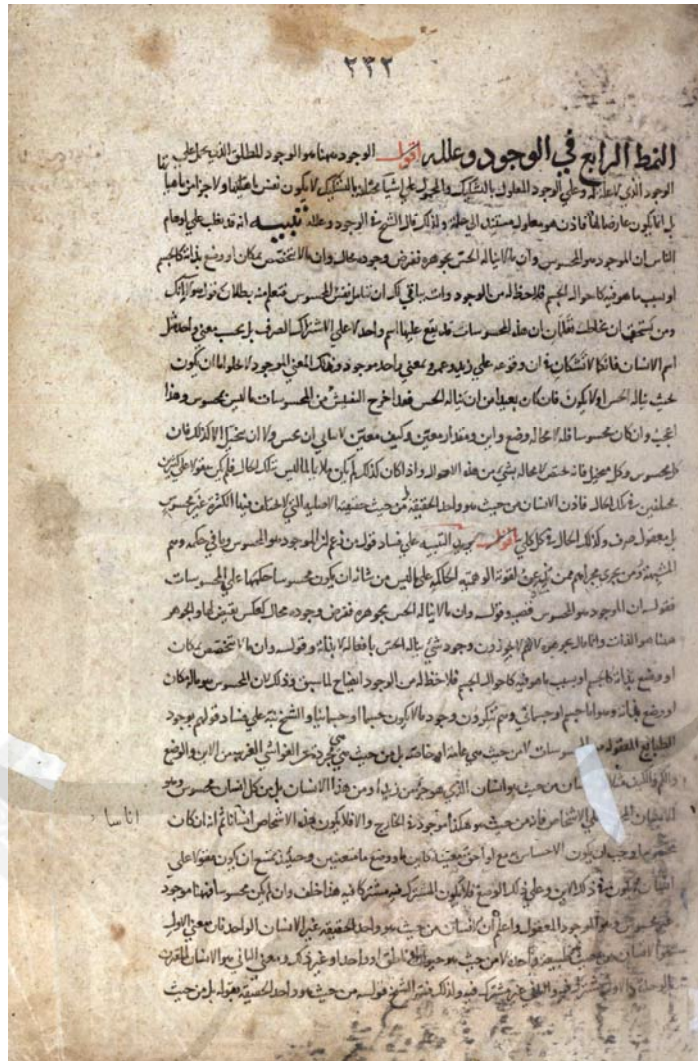 ٢٣٢
النمط الرابع في الوجود وعلله اقول الوجود ههنا هو الوجود المطلق الذي يحمل على
الوجود الذي لا علة له وعلي الوجود المعلول بالتشكيك والمحمول علي اشيا مختلفة بالتشكيك لا يكون نفس ماهياتها ولا جزا من ماهياتها
بل انما يكون عارضا لها فاذن هو معلول مستند الي علة ولذلك قال الشيخ في الوجود وعلله تنبيه انه قد يغلب علي اوهام
الناس ان الموجود هو المحسوس وان ما لا يناله الحس بجوهره ففرض وجوده محال وان ما لا يتخصص بمكان او وضع بذاته كالجسم
او بسبب ما هو فيه كاحوال الجسم فلا حظ له من الوجود وانت يتاتي لك ان تتامل نفس المحسوس فتعلم منه بطلان قول هولا لانك
ومن يستحق ان يخاطب تعلمان ان هذه المحسوسات قد يقع عليها اسم واحد لا علي الاشتراك الصرف بل بحسب معني واحد مثل
اسم الانسان فانكما لا تشكان في ان وقوعه علي زيد وعمرو بمعني واحد موجود فذلك المعني الموجود لا يخلو اما ان يكون
بحيث يناله الحس او لا يكون فان كان بعيدا من ان يناله الحس فقد اخرج التفتيش من المحسوسات ما ليس بمحسوس وهذا
اعجب وان كان محسوسا فله لا محالة وضع واين ومقدار معين وكيف معين لا يتاتي ان يحس ولا ان يتخيل الا كذلك فان
كل محسوس وكل متخيل فانه يتخصص لا محالة بشي من هذه الاحوال واذا كان كذلك لم يكن ملايما لما ليس بتلك الحال فلم يكن مقولا علي كثيرين
مختلفين في تلك الحال فاذن الانسان من حيث هو واحد الحقيقة بل من حيث حقيقته الاصلية التي لا تختلف فيها الكثرة غير محسوس
بل معقول صرف وكذلك الحال في كل كلي اقول يريد التنبيه علي فساد قول من زعم ان الموجود هو المحسوس وما في حكمه وهم
المشبهة ومن يجري مجراهم ممن
فقوله ان الموجود هو المحسوس قضية وقوله وان ما لا يناله الحس بجوهره ففرض وجوده محال كعكس نقيض لها والجوهر
ههنا هو الذات
او وضع بذاته كالجسم او بسبب ما هو فيه كاحوال الجسم فلا حظ له من الوجود ايضاح لما سبق وذلك لان المحسوس هو ما له مكان
او وضع بذاته وهو اما جسم او جسماني وهم ينكرون وجود ما لا يكون جسما او جسمانيا والشيخ نبه علي فساد قولهم بوجود
الطبايع المعقولة من المحسوسات لا من حيث هي عامة او خاصة بل من حيث هي مجردة عن الغواشي الغريبة من الاين والوضع
والكم والكيف مثلا الانسان من حيث هو انسان الذي هو جزء من زيد او من هذا الانسان بل من كل انسان محسوس وهو
علي الاشخاص فانه من حيث هو هكذا موجود في الخارج والا فلا يكون هذه الاشخاص اناسا ثم انه ان كان
محسوسا وجب ان يكون الاحساس به مع لواحق معينة كاين ما ووضع ما متعينين وحينئذ يمتنع ان يكون مقولا علي
انسان لا يكون في ذلك الاين وعلي ذلك الوضع فلا يكون المشترك فيه مشتركا فيه هذا خلف وان لم يكن محسوسا فههنا موجود
غير محسوس وهو الموجود المعقول واعلم ان الانسان من حيث هو واحد الحقيقة غير الانسان الواحد فان معني الاول
هو الانسان من حيث طبيعة واحدة لا من حيث هو حيوان او ناطق او واحد او غير ذلك ومعني الثاني هو الانسان المقترن
بالوحدة والاول مشترك فيه والثاني غير مشترك فيه ولذلك فسر الشيخ قوله من حيث هو واحد الحقيقة بقوله بل من حيث
اناسا